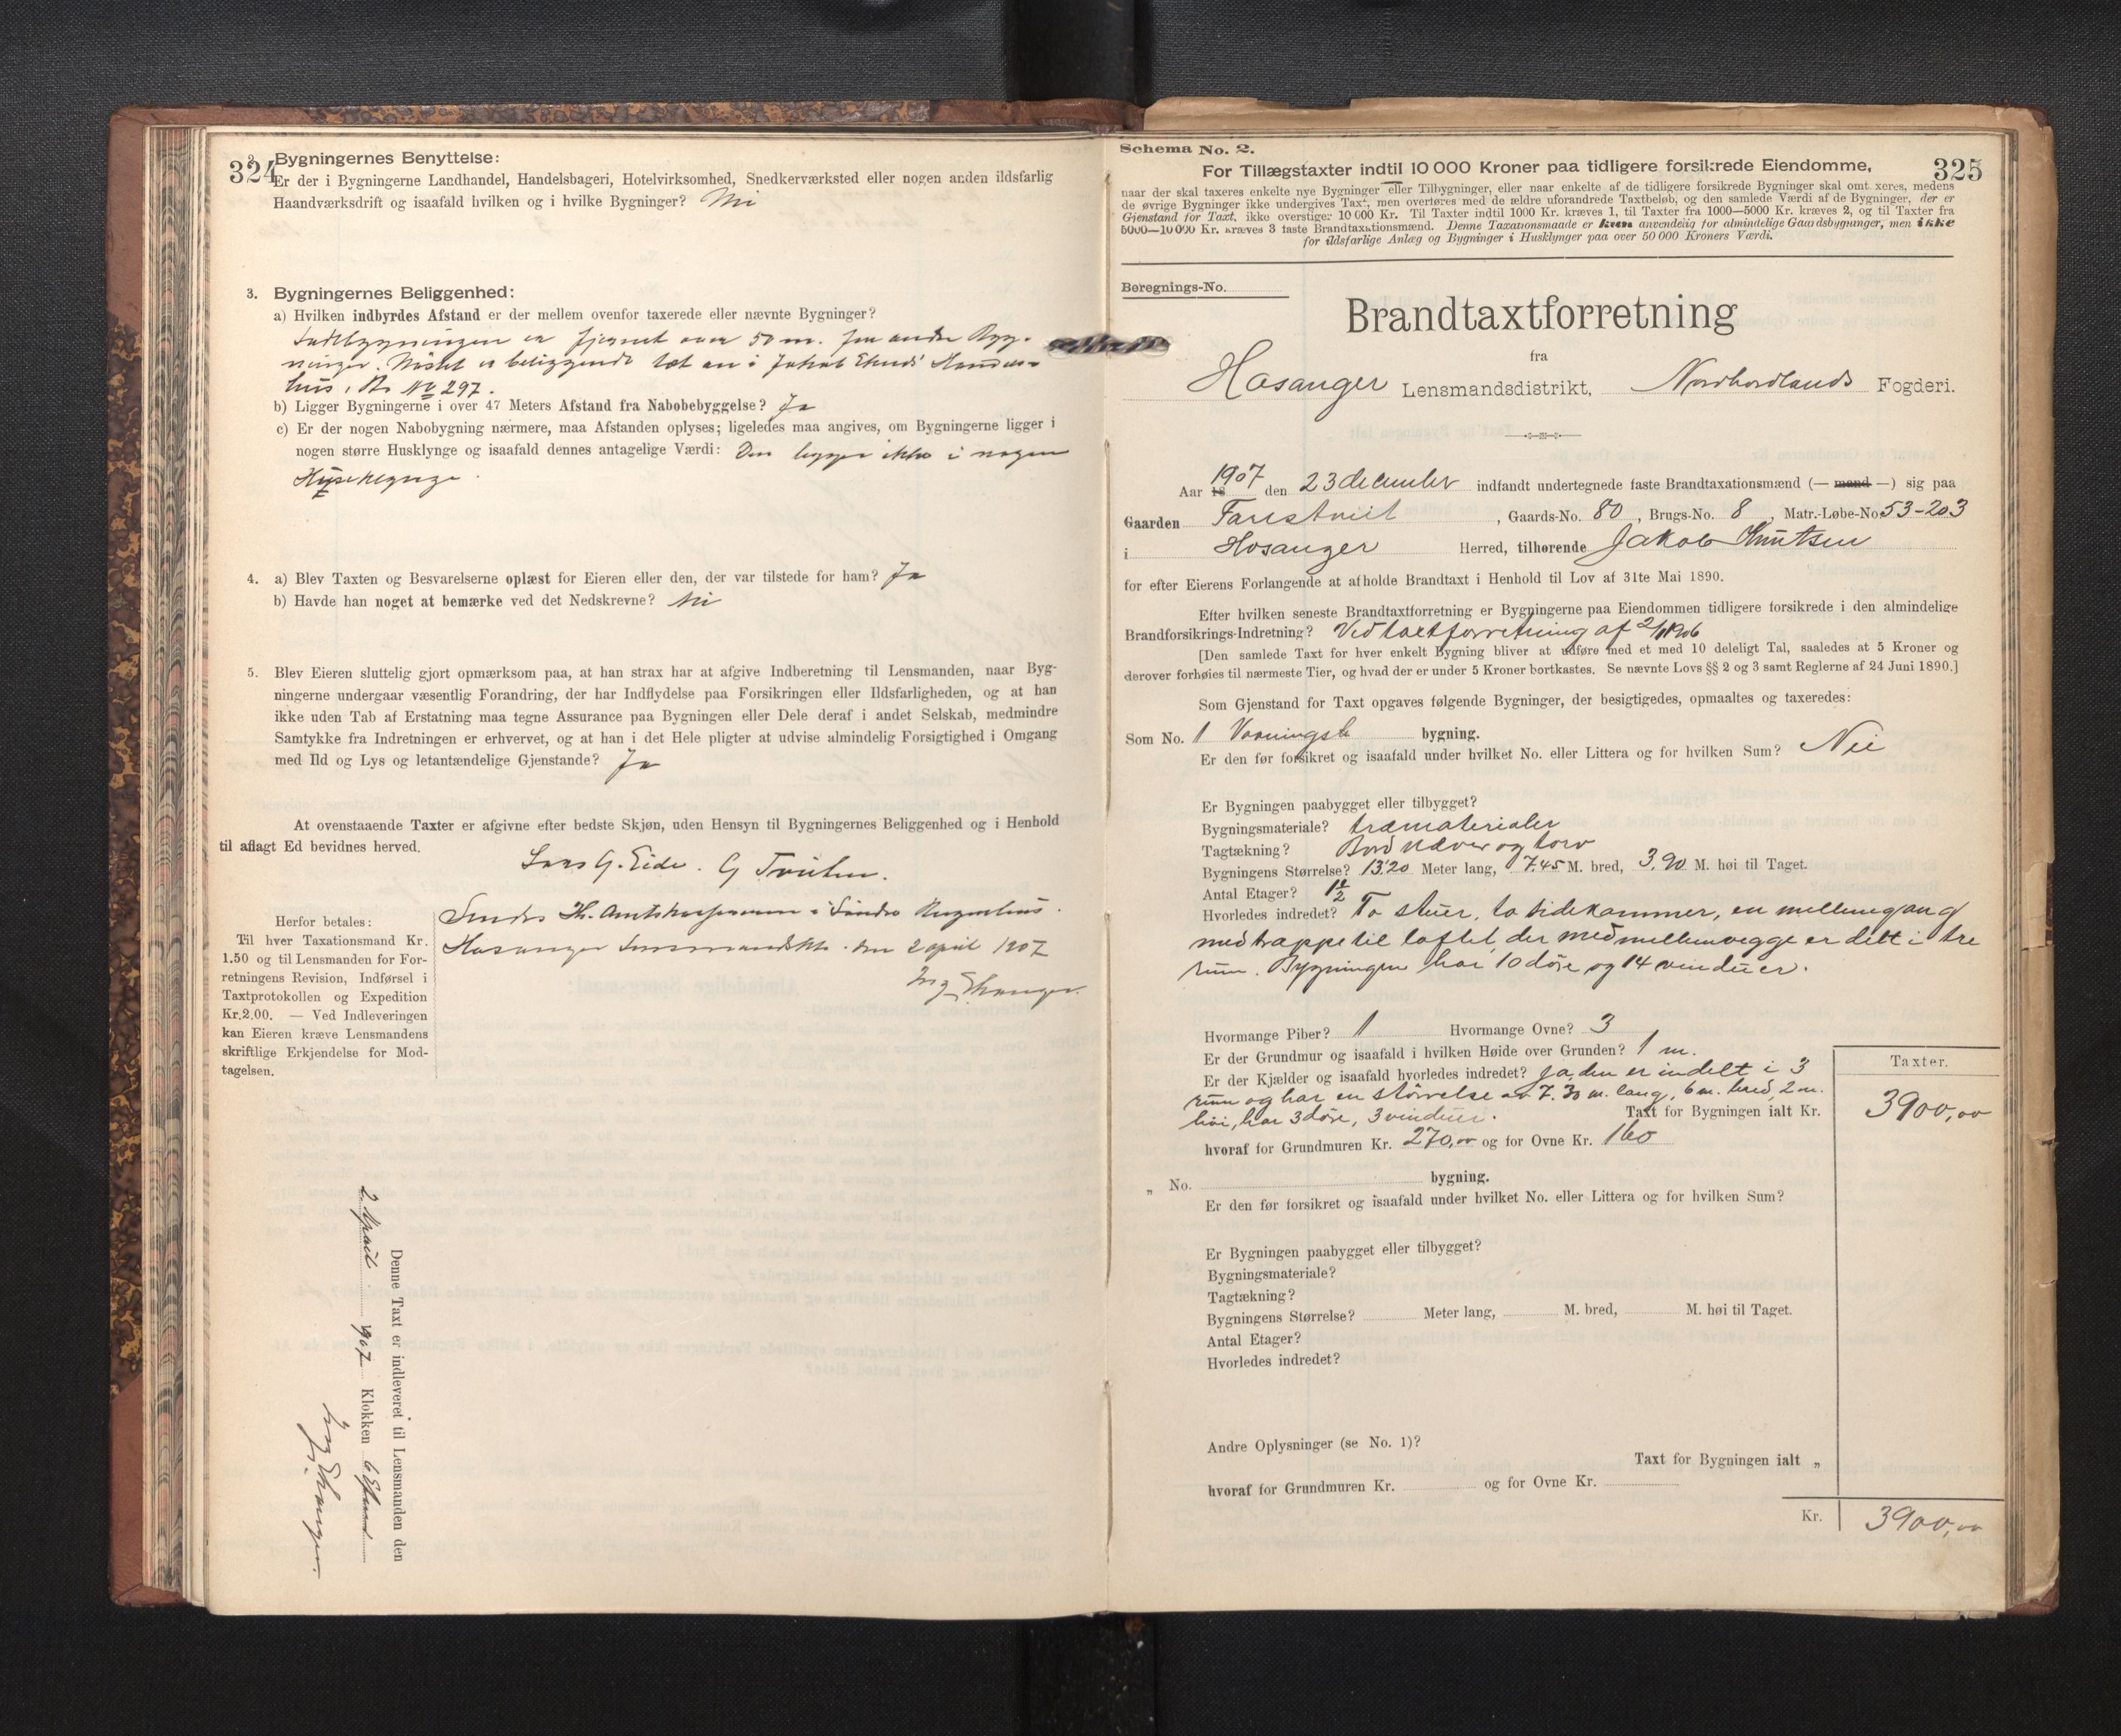 324
2. Bygningernes Benyttelse:
Er der i Bygningerne Landhandel, Handelsbageri, Hotelvirksomhed, Snedkerværksted eller nogen anden ildsfarlig
Haandværksdrift og isaafald hvilken og i hvilke Bygninger? Nei
3. Bygningernes Beliggenhed:
a) Hvilken indbyrdes Afstand er der mellem ovenfor taxerede eller nævnte Bygninger?
er fjernet over 50 m. fra andre Byg-
ninger. Nøstet er beliggende tæt an i Jakob
hus, Br. No 297.
b) Ligger Bygningerne i over 47 Meters Afstand fra Nabobebyggelse? Ja
c) Er der nogen Nabobygning nærmere, maa Afstanden oplyses; ligeledes maa angives, om Bygningerne ligger i
nogen større Husklynge og isaafald dennes antagelige Værdi: Den ligger ikke i nogen
Husklynge.
4. a) Blev Taxten og Besvarelserne oplæst for Eieren eller den, der var tilstede for ham? Ja
b) Havde han noget at bemærke ved det Nedskrevne? Nei
5. Blev Eieren sluttelig gjort opmærksom paa, at han strax har at afgive Indberetning til Lensmanden, naar Byg-
ningerne undergaar væsentlig Forandring, der har Indflydelse paa Forsikringen eller Ildsfarligheden, og at han
ikke uden Tab af Erstatning maa tegne Assurance paa Bygningen eller Dele deraf i andet Selskab, medmindre
Samtykke fra Indretningen er erhvervet, og at han i det Hele pligter at udvise almindelig Forsigtighed i Omgang
med Ild og Lys og letantændelige Gjenstande? Ja
At ovenstaaende Taxter er afgivne efter bedste Skjøn, uden Hensyn til Bygningernes Beliggenhed og i Henhold
til aflagt Ed bevidnes herved.
Lars G. Eide. G
Herfor betales:
Til hver Taxationsmand Kr.
1.50 og til Lensmanden for For-
retningens Revision, Indførsel i
Taxtprotokollen og Expedition
Kr.2.00. — Ved Indleveringen
kan Eieren kræve Lensmandens
skriftlige Erkjendelse for Mod-
tagelsen.
Sendes Hr. i Søndre Bergenhus.
Hosanger den 2 april 1907
Denne Taxt er indleveret til Lensmanden den
2. April 1907 Klokken 6
325
Schema No. 2.
For Tillægstaxter indtil 10 000 Kroner paa tidligere forsikrede Eiendomme,
naar der skal taxeres enkelte nye Bygninger eller Tilbygninger, eller naar enkelte af de tidligere forsikrede Bygninger skal omtaxeres, medens
de øvrige Bygninger ikke undergives Taxt, men overføres med de ældre uforandrede Taxtbeløb, og den samlede Værdi af de Bygninger, der er
Gjenstand for Taxt, ikke overstiger 10 000 Kr. Til Taxter indtil 1000 Kr. kræves 1, til Taxter fra 1000—5000 Kr. kræves 2, og til Taxter fra
5000—10 000 Kr. kræves 3 faste Brandtaxationsmænd. Denne Taxationsmaade er kun anvendelig for almindelige Gaardsbygninger, men ikke
for ildsfarlige Anlæg og Bygninger i Husklynger paa over 50 000 Kroners Værdi.
Beregnings-No.
Brandtaxtforretning
fra
Hosanger Lensmandsdistrikt, Nordhordlands Fogderi.
Aar 1907 den 23 december indfandt undertegnede faste Brandtaxationsmænd (— mand —) sig paa
Gaarden Farestveit, Gaards-No. 80, Brugs-No. 8, Matr.-Løbe-No 53-203
i Hosanger Herred, tilhørende Jakob Knutsen
for efter Eierens Forlangende at afholde Brandtaxt i Henhold til Lov af 31te Mai 1890.
Efter hvilken seneste Brandtaxtforretning er Bygningerne paa Eiendommen tidligere forsikrede i den almindelige
Brandforsikrings-Indretning? Ved taxtforretning af 2/11 1906
[Den samlede Taxt for hver enkelt Bygning bliver at udføre med et med 10 deleligt Tal, saaledes at 5 Kroner og
derover forhøies til nærmeste Tier, og hvad der er under 5 Kroner bortkastes. Se nævnte Lovs §§ 2 og 3 samt Reglerne af 24 Juni 1890.]
Som Gjenstand for Taxt opgaves følgende Bygninger, der besigtigedes, opmaaltes og taxeredes:
Som No. 1 Vaaningsh bygning.
Er den før forsikret og isaafald under hvilket No. eller Littera og for hvilken Sum? Nei
Er Bygningen paabygget eller tilbygget?
Bygningsmateriale? træmaterialer
Tagtækning? Bord næver og torv
Bygningens Størrelse? 13.20 Meter lang, 7.45 M. bred, 3.90 M. høi til Taget.
Antal Etager? 1 1/2
Hvorledes indredet? To stuer, to sidekammer, en mellemgang
med trappe til loftet, der med mellemvegge er delt i tre
rum. Bygningen har 10 døre og 14 vinduer.
Hvormange Piber? 1 Hvormange Ovne? 3
Er der Grundmur og isaafald i hvilken Høide over Grunden? 1 m.
Er der Kjælder og isaafald hvorledes indredet? Ja, den er indelt i 3
rum og har en størrelse av 7.30 m. lang, 6 m. bred, 2 m.
høi, har 3 døre, 3 vinduer.
Taxter.
Taxt for Bygningen ialt Kr. 3900,00
hvoraf for Grundmuren Kr. 270,00 og for Ovne Kr. 160
„ No. bygning.
Er den før forsikret og isaafald under hvilket No. eller Littera og for hvilken Sum?
Er Bygningen paabygget eller tilbygget?
Bygningsmateriale?
Tagtækning?
Bygningens Størrelse? Meter lang, M. bred, M. høi til Taget.
Antal Etager?
Hvorledes indredet?
Andre Oplysninger (se No. 1)?
Taxt for Bygningen ialt „
hvoraf for Grundmuren Kr. og for Ovne Kr.
Kr. 3900,00